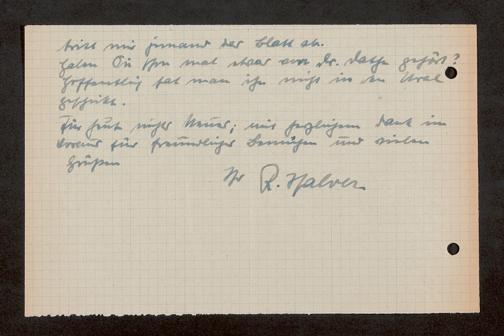 tritt mir jemand das Blatt ab.
Haben Sie schon mal etwas von Dr. Dathe gehört?
Hoffentlich hat man ihn nicht in den Ural
geschickt.
Für heute nichts Neues; mit herzlichem Dank im
voraus für freundliches Bemühen und vielen
Grüßen
Ihr R. Halver